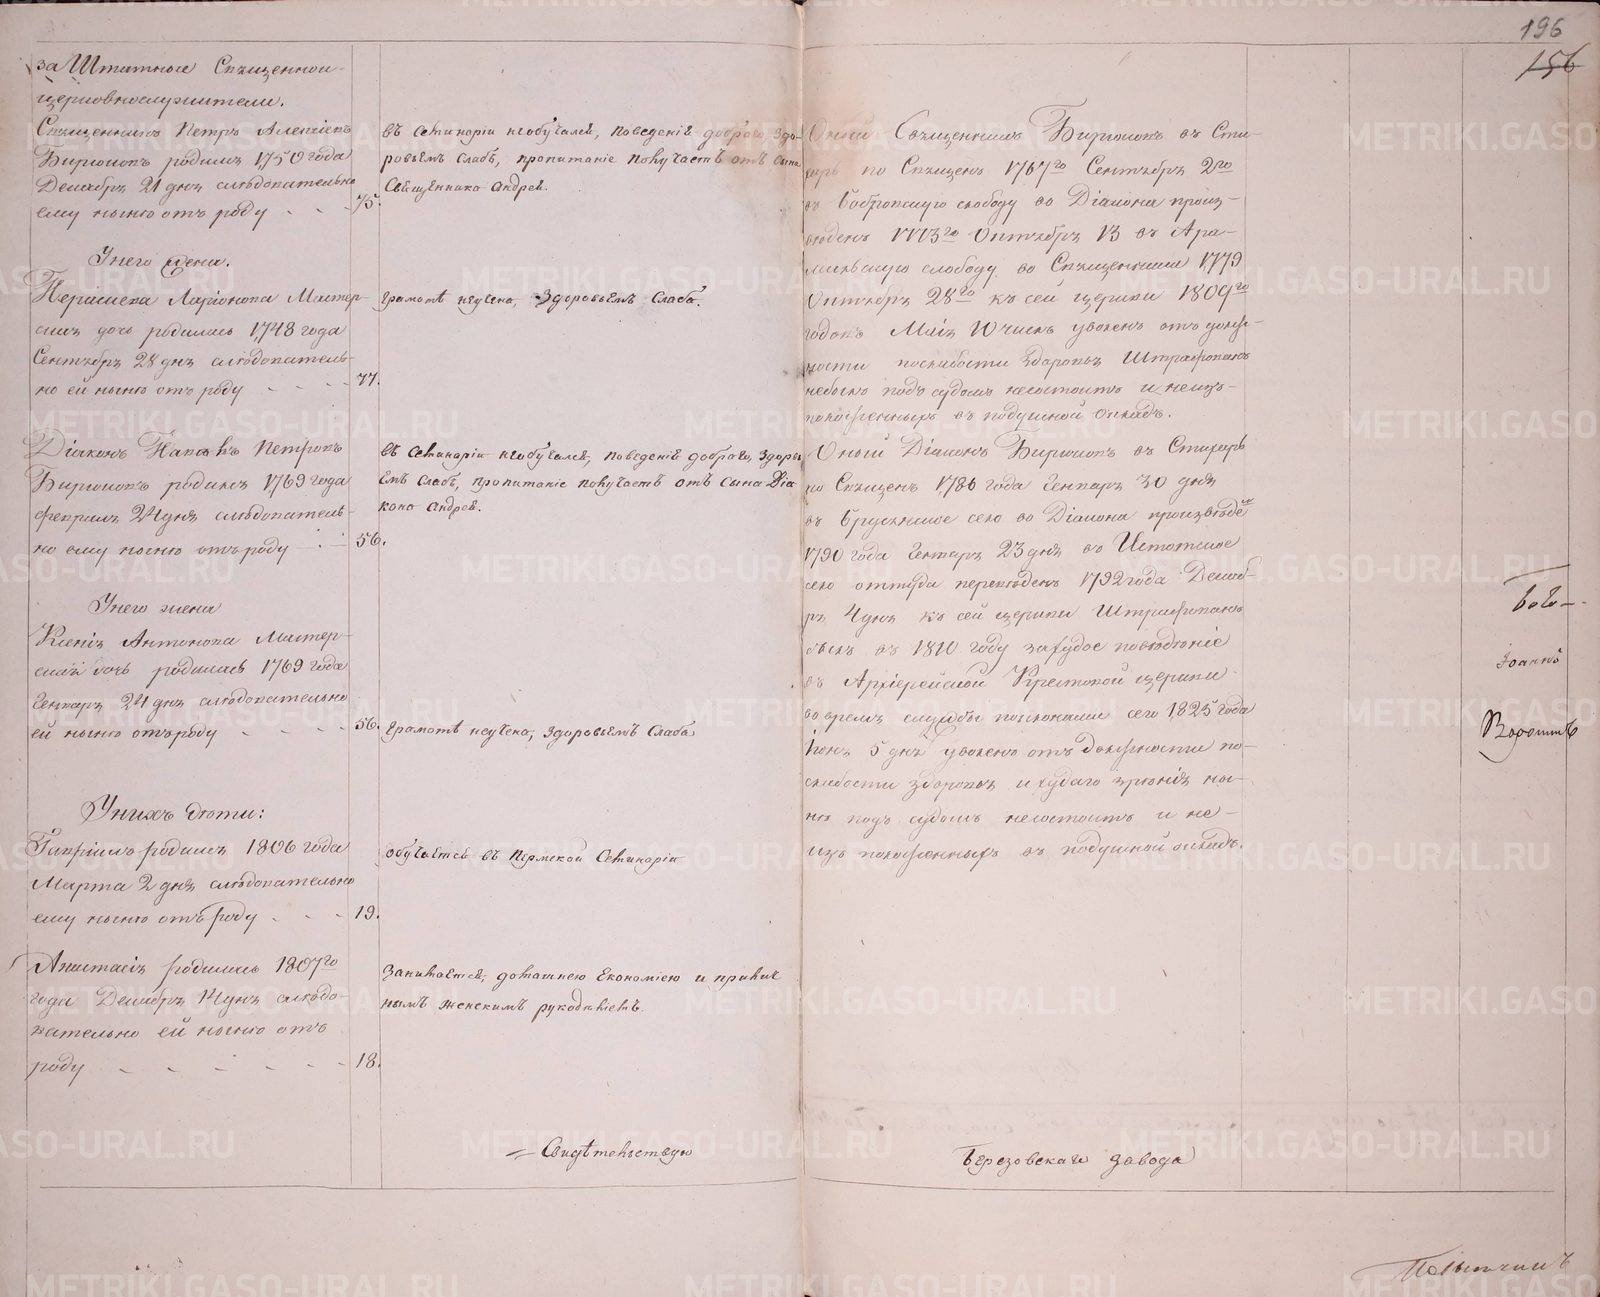 196
156
за Штатные Священно-
церковнослужители.
Священникъ Петръ Алексѣевъ
Бирюковъ родился 1750 года
Декабря 21 дня слѣдовательно
ему нынѣ отъ роду - - - 75.
У него жена.
Лари­онова Мастер-
ская дочь родилась 1748 года
Сентября 28 дня слѣдователь-
но ей нынѣ отъ роду - - - - 77.
Діаконъ Петровъ
Бирюковъ родился 1769 года
февраля 24 дня слѣдователь-
но ему нынѣ отъ роду 56.
У него жена
Ксенія Антонова Мастер-
ская дочь родилась 1769 года
Генваря 24 дня слѣдовательно
ей нынѣ отъ роду - - - - 56.
У нихъ дѣти:
Гавріилъ родился 1806 года
Марта 2 дня слѣдовательно
ему нынѣ отъ роду - - - 19.
Анастасія родилась 1807го
года Декабря 14 дня слѣдо-
вательно ей нынѣ отъ
роду - - - - - - - 18.
въ Семинаріи необучался, поведенія добраго, здо-
ровьемъ слабъ, пропитаніе получаетъ отъ сына
Священника Андрея.
Грамотѣ неучена, здоровьемъ слаба.
въ Семинаріи необучался, поведенія добраго, здоровь-
емъ слабъ, пропитаніе получаетъ отъ сына Діа-
кона Андрея.
Грамотѣ неучена, здоровьемъ слаба
обучается въ Пермской Семинаріи
Занимается домашнею економіею и прилич
нымъ женскимъ рукодѣліемъ.
Свидѣтельствую
Оный Священникъ Бирюковъ въ Сти-
харь по Священъ 1767го Сентября 2го
въ слободу во Діакона произ-
веденъ 1773го Октября 13 въ Ара-
мильскую слободу во Священника 1779
Октября 28го къ сей церкви 1809го
года Маія 10 числа уволенъ отъ долж-
ности по слабости здоровья Штрафованъ
небылъ подъ судомъ несостоитъ и неиз-
положенныхъ въ подушной окладъ.
Оный Діаконъ Бирюковъ въ Стихарь
по Священъ 1786 года Генваря 30 дня
въ Брусянское село во Діакона произведе
1790 года Генваря 23 дня въ Истокское
село оттуда переведенъ 1792 года Декаб-
ря 4 дня къ сей церкви Штрафованъ
былъ въ 1810 году за худое поведеніе
въ Архіерейской Крестовой церкви
во время службы поклонами сего 1825 года
Іюня 5 дня уволенъ отъ должности по
слабости здоровья и худаго зрѣнія ны-
нѣ подъ судомъ несостоитъ и не-
изъ положенныхъ въ подушной окладъ.
Березовскаго завода
Іоаннъ